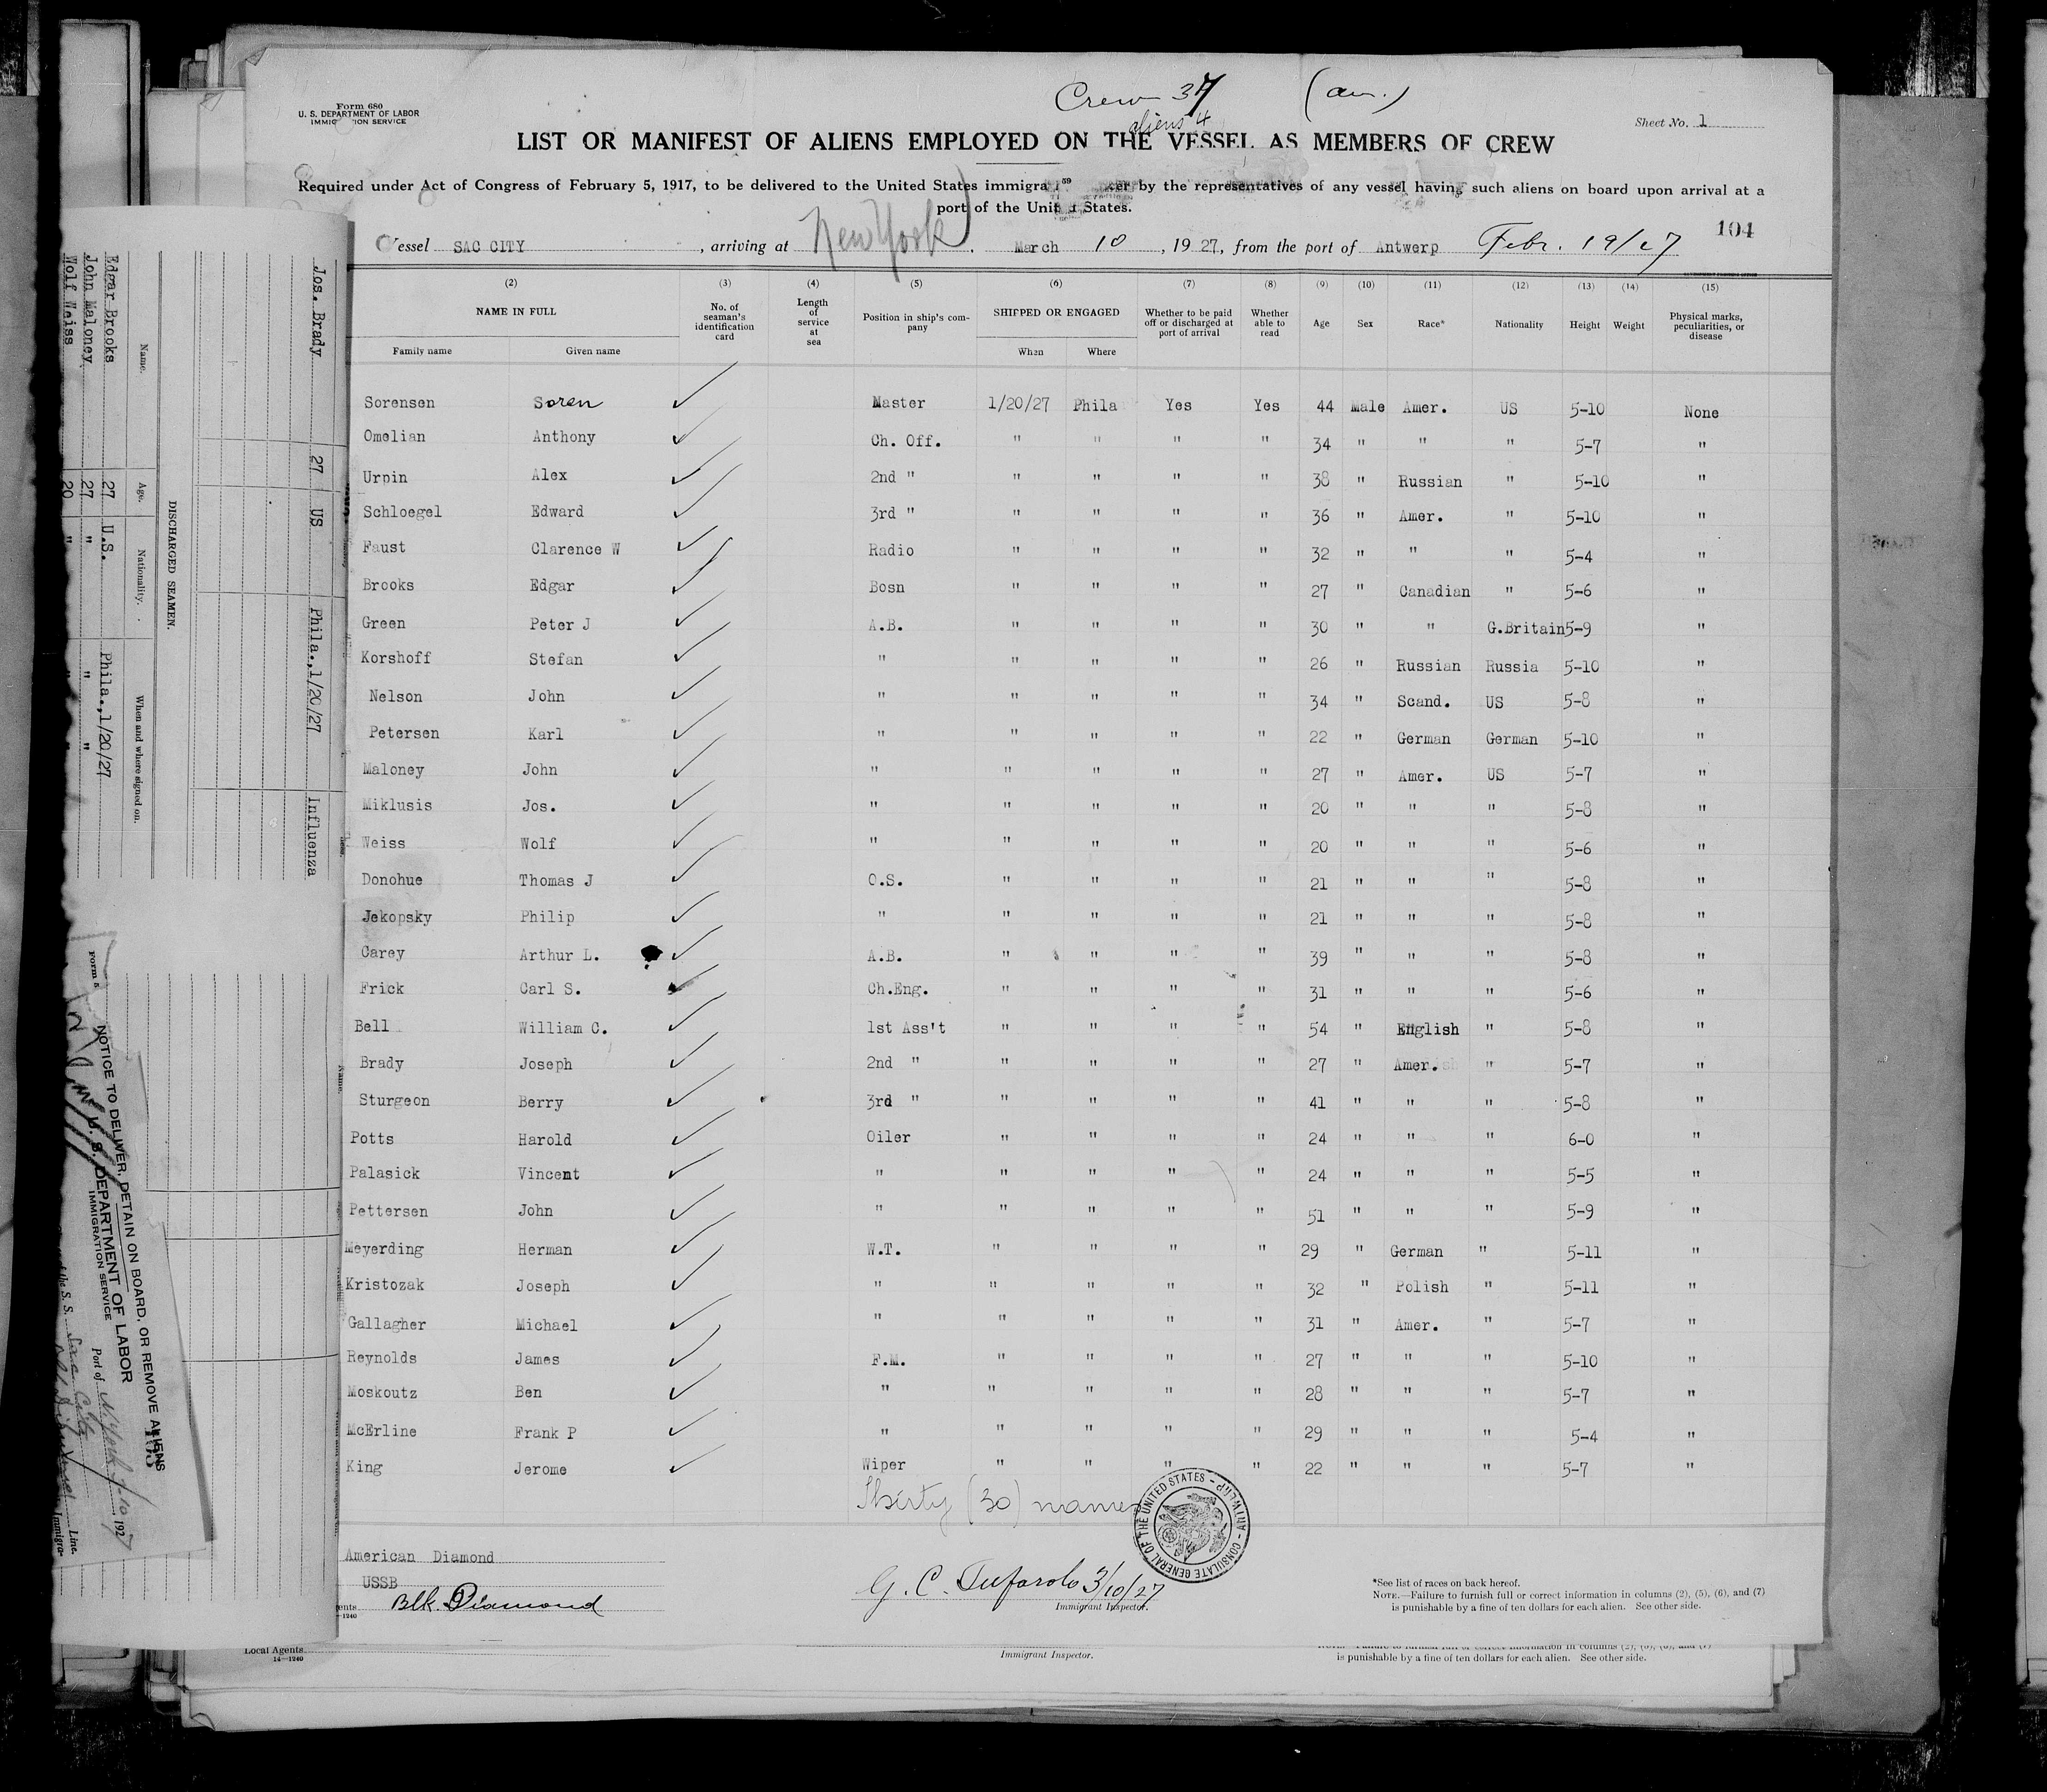 Crew 37 (am.)
aliens 4
Form 680
U. S. DEPARTMENT OF LABOR
IMMIGRATION SERVICE
Sheet No. 1
LIST OR MANIFEST OF ALIENS EMPLOYED ON THE VESSEL AS MEMBERS OF CREW
Required under Act of Congress of February 5, 1917, to be delivered to the United States immigra er by the representatives of any vessel having such aliens on board upon arrival at a
port of the United States.
104
Vessel SAC CITY, arriving at New York, March 10, 1927, from the port of Antwerp Febr. 19/27
(2) (3) (4) (5) (6) (7) (8) (9) (10) (11) (12) (13) (14) (15)
NAME IN FULL No. of seaman's identification card Length of service at sea Position in ship's company SHIPPED OR ENGAGED Whether to be paid off or discharged at port of arrival Whether able to read Age Sex Race* Nationality Height Weight Physical marks, peculiarities, or disease
Family name Given name When Where
Sorensen Soren Master 1/20/27 Phila Yes Yes 44 Male Amer. US 5-10 None
Omelian Anthony Ch. Off. " " " " 34 " " " 5-7 "
Urpin Alex 2nd " " " " " 38 " Russian " 5-10 "
Schloegel Edward 3rd " " " " " 36 " Amer. " 5-10 "
Faust Clarence W Radio " " " " 32 " " " 5-4 "
Brooks Edgar Bosn " " " " 27 " Canadian " 5-6 "
Green Peter J A.B. " " " " 30 " " G.Britain 5-9 "
Korshoff Stefan " " " " " 26 " Russian Russia 5-10 "
Nelson John " " " " " 34 " Scand. US 5-8 "
Petersen Karl " " " " " 22 " German German 5-10 "
Maloney John " " " " " 27 " Amer. US 5-7 "
Miklusis Jos. " " " " " 20 " " " 5-8 "
Weiss Wolf " " " " " 20 " " " 5-6 "
Donohue Thomas J O.S. " " " " 21 " " " 5-8 "
Jekopsky Philip " " " " " 21 " " " 5-8 "
Carey Arthur L. A.B. " " " " 39 " " " 5-8 "
Frick Carl S. Ch.Eng. " " " " 31 " " " 5-6 "
Bell William C. 1st Ass't " " " " 54 " English " 5-8 "
Brady Joseph 2nd " " " " " 27 " Amer. " 5-7 "
Sturgeon Berry 3rd " " " " " 41 " " " 5-8 "
Potts Harold Oiler " " " " 24 " " " 6-0 "
Palasick Vincent " " " " " 24 " " " 5-5 "
Pettersen John " " " " " 51 " " " 5-9 "
Meyerding Herman W.T. " " " " 29 " German " 5-11 "
Kristozak Joseph " " " " " 32 " Polish " 5-11 "
Gallagher Michael " " " " " 31 " Amer. " 5-7 "
Reynolds James F.M. " " " " 27 " " " 5-10 "
Moskoutz Ben " " " " " 28 " " " 5-7 "
McErline Frank P " " " " " 29 " " " 5-4 "
King Jerome Wiper " " " " 22 " " " 5-7 "
Thirty (30) names
CONSULATE GENERAL OF THE UNITED STATES - ANTWERP -
American Diamond
USSB
Blk. Diamond
G. C. Tufarolo 3/10/27
Immigrant Inspector.
*See list of races on back hereof.
NOTE.—Failure to furnish full or correct information in columns (2), (5), (6), and (7)
is punishable by a fine of ten dollars for each alien. See other side.
ents
—1240
Local Agents
14—1240
Immigrant Inspector.
is punishable by a fine of ten dollars for each alien. See other side.
Jos. Brady 27 US Phila.,1/20/27 Influenza
DISCHARGED SEAMEN.
Name. Age. Nationality. When and where signed on.
Edgar Brooks 27 U.S. Phila.,1/20/27
John Maloney 27 " "
Wolf Weiss 20 " "
NOTICE TO DELIVER, DETAIN ON BOARD, OR REMOVE ALIENS
U. S. DEPARTMENT OF LABOR
IMMIGRATION SERVICE
Port of N. York 3-10 1927
of the S. S. Sac City
Line.
Immigra-